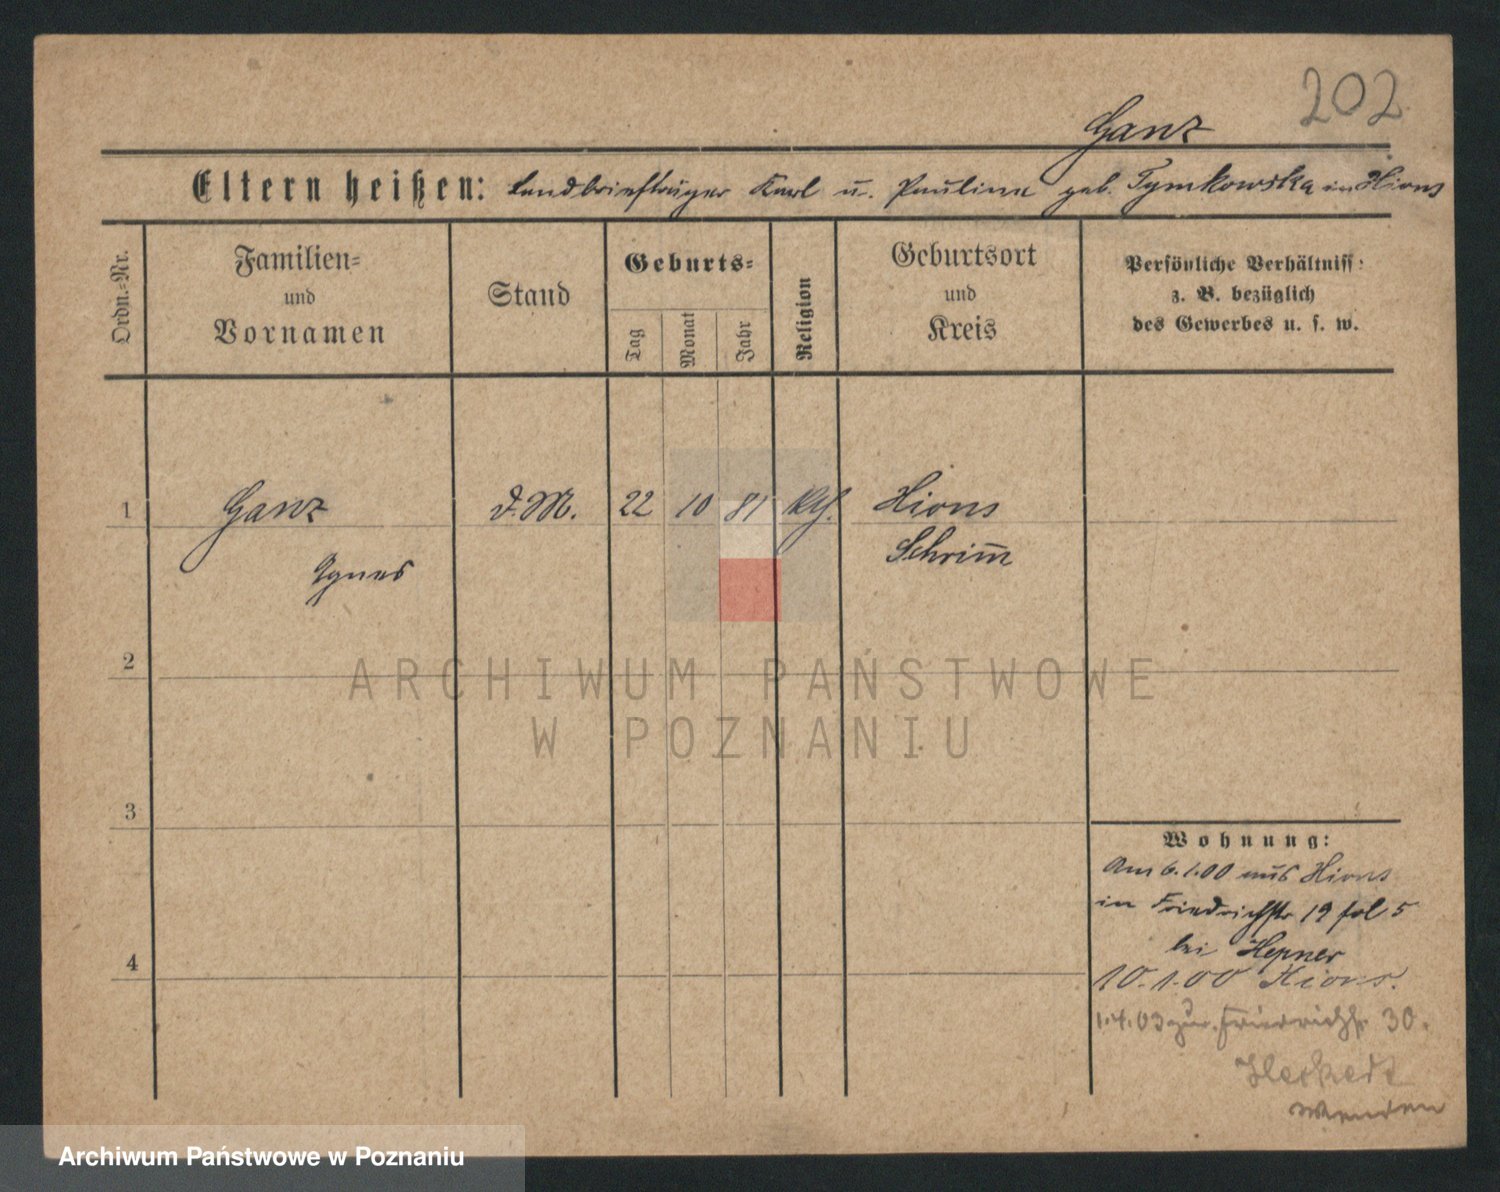 202
Ganz
Eltern heißen: Landbriefträger Karl u. Paulina geb. Tymkowska in Xions
Ordn.-Nr.
Familien-
und
Vornamen
Stand
Geburts-
Tag
Monat
Jahr
Religion
Geburtsort
und
Kreis
Persönliche Verhältniss:
z. B. bezüglich
des Gewerbes u. s. w.
1
Ganz
Agnes
d. M.
22
10
81
kth.
Xions
Schrim̅
2
ARCHIWUM PAŃSTWOWE
W POZNANIU
3
4
Wohnung:
Am 6.1.00 aus Xions
in Friedrichstr 19 fol 5
bei Hepner
10.1.00 Xions.
1.4.03 zur. Friedrichstr. 30.
Wenden
Archiwum Państwowe w Poznaniu